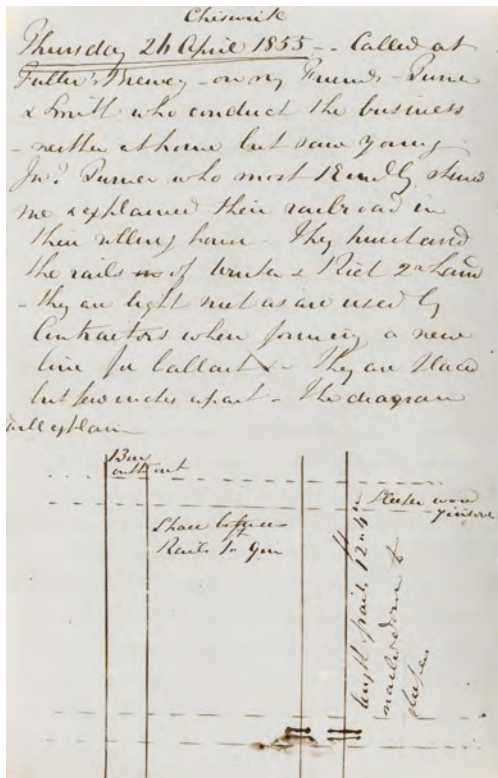 Chiswick
Thursday 26 April 1855 -- Called at
Fuller's Brewey - on my Friends - Turner
& Smith who conduct the business
- neither at home but saw young
Jno. Turner who most kindly shewed
me & explained their railroad in
their rolling house - They purchased
the rails of 2nd hand
- they are light such as are used by
Contractors when forming a new
line for ballast &c - They are placed
but few inches apart - The diagram
will explain
13 in
Sleeper wood
Space between
Rails 1 ft 9 in
length rail. 12 ft 4 in
nailed down to
sleeper